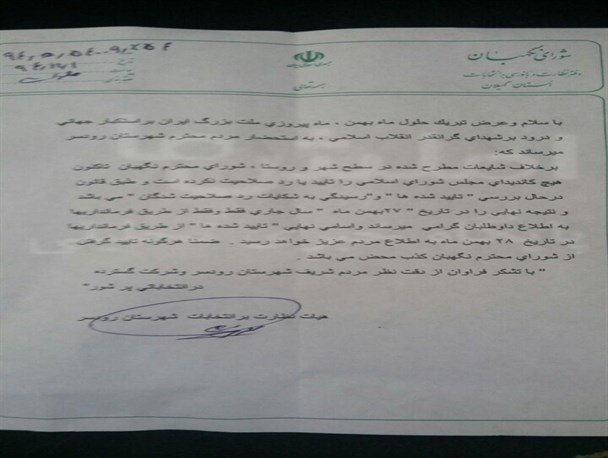 شورای نگهبان
دفتر نظارت و بازرسی انتخابات
استان گیلان
جمهوری اسلامی ایران
بسمه تعالی
با سلام وعرض تبریک حلول ماه بهمن ، ماه پیروزي ملت بزرگ ایران براستکبار جهاني
و درود برشهداي گرانقدر انقلاب اسلامي ، به استحضار مردم محترم شهرستان رودسر
میرساند که:
برخلاف شایعات مطرح شده در سطح شهر و روستا ، شوراي محترم نگهبان تاکنون
هیچ کاندیداي مجلس شوراي اسلامي را تایید یا رد صلاحیت نکرده است و طبق قانون
درحال بررسي " تایید شده ها " و"رسیدگي به شکایات رد صلاحیت شدگان " مي باشد
و نتیجه نهایي را در تاریخ " ۲۷بهمن ماه " سال جاري فقط وفقط از طریق فرمانداریها
به اطلاع داوطلبان گرامي میرساند واسامي نهایي " تایید شده ها " از طریق فرمانداریها
در تاریخ ۲۸ بهمن ماه به اطلاع مردم عزیز خواهد رسید . ضمنا هرگونه تایید گرفتن
از شوراي محترم نگهبان کذب محض مي باشد .
" با تشکر فراوان از دقت نظر مردم شریف شهرستان رودسر وشرکت گسترده
درانتخاباتي پر شور"
هیات نظارت برانتخابات شهرستان رودسر